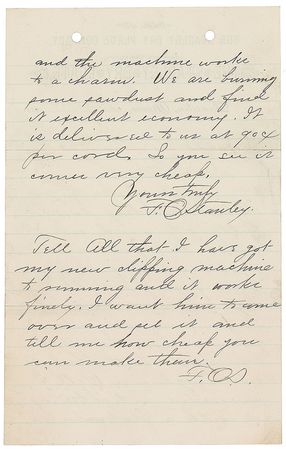 and the machine works
to a charm. We are burning
some sawdust and find
it excellent economy. It
is delivered to us at 90¢
per cord. So you see it
comes very cheap.
Yours truly
F. O. Stanley.
Tell All that I have got
my new dipping machine
to running and it works
finely. I want him to come
over and see it and
tell me how cheap you
can make them.
F. O. S.